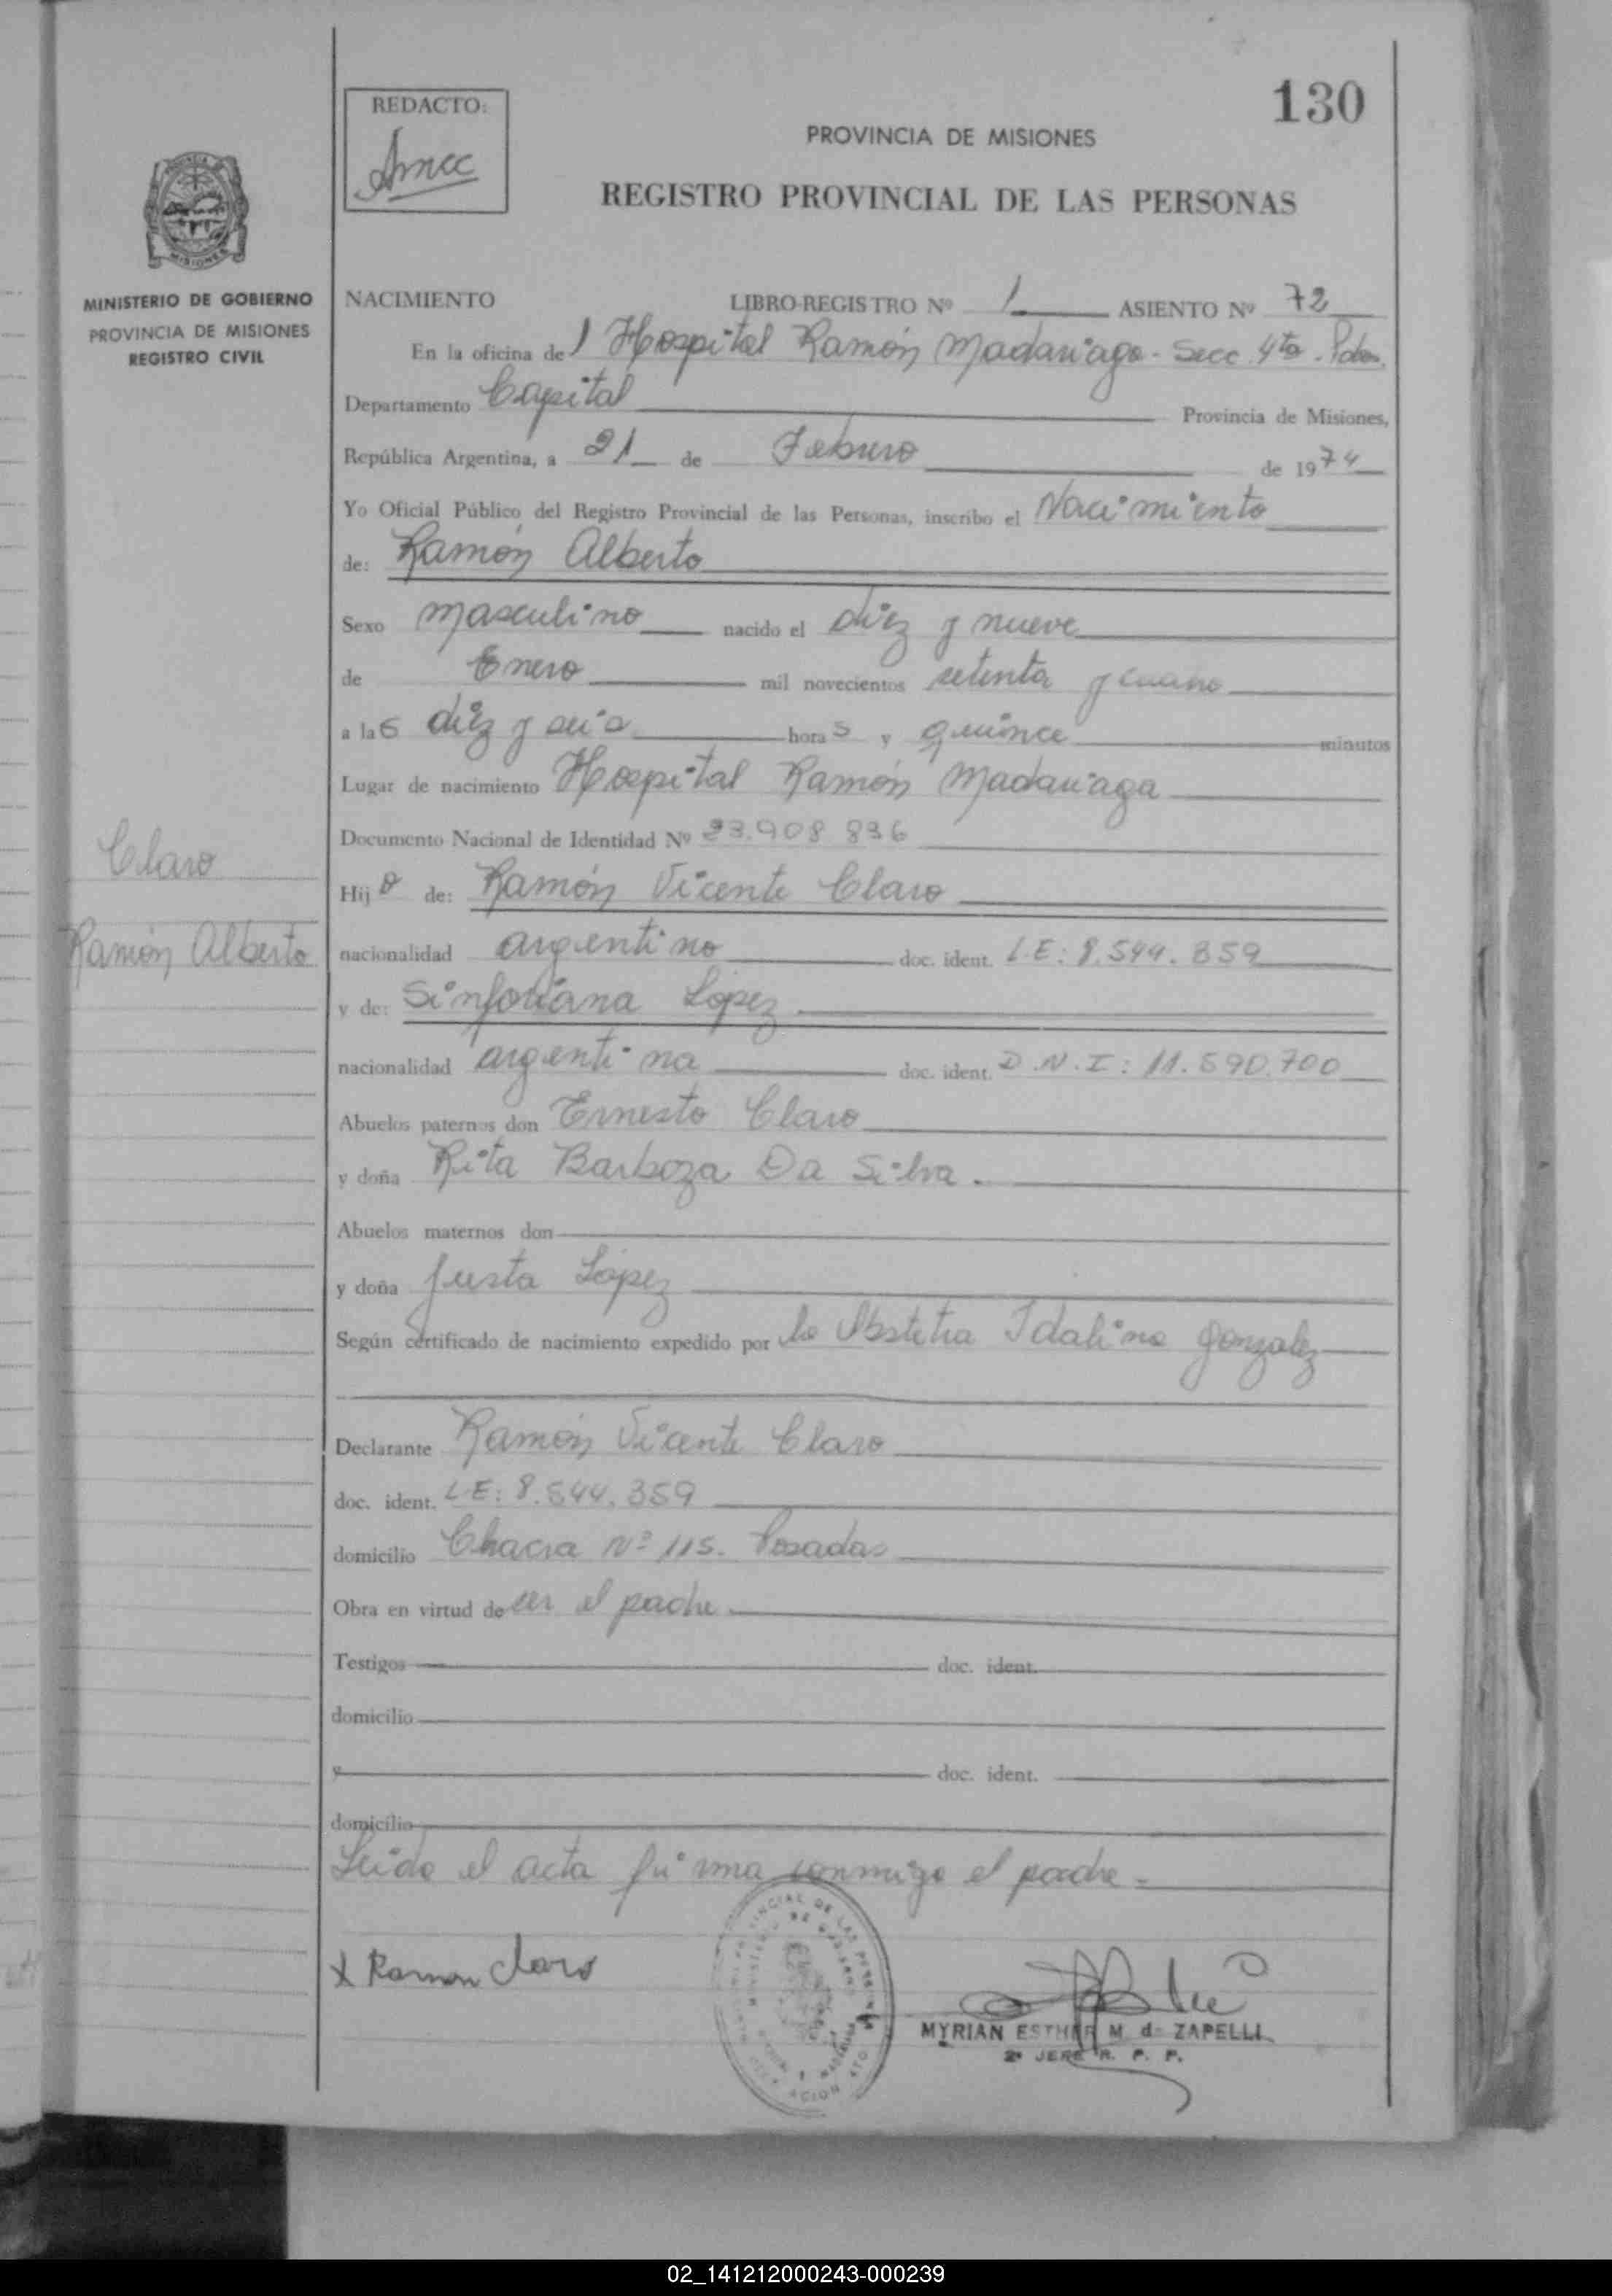 130
REDACTO:
Amcc
PROVINCIA DE MISIONES
REGISTRO PROVINCIAL DE LAS PERSONAS
MISIONES
MINISTERIO DE GOBIERNO
PROVINCIA DE MISIONES
REGISTRO CIVIL
NACIMIENTO LIBRO-REGISTRO Nº 1 ASIENTO Nº 72
En la oficina del Hospital Ramón Madariaga - Secc. 4ta. Pdas.
Departamento Capital Provincia de Misiones,
República Argentina, a 21 de Febrero de 1974
Yo Oficial Público del Registro Provincial de las Personas, inscribo el Nacimiento
de: Ramón Alberto
Sexo masculino nacido el diez y nueve
de Enero mil novecientos setenta y cuatro
a las diez y seis horas y quince minutos
Lugar de nacimiento Hospital Ramón Madariaga
Documento Nacional de Identidad Nº 23.908.836
Claro
Hijo de: Ramón Vicente Claro
Ramón Alberto
nacionalidad argentino doc. ident. L.E: 8.544.359
y de: Sinforiana López
nacionalidad argentina doc. ident. D.N.I: 11.590.700
Abuelos paternos don Ernesto Claro
y doña Rita Barboza Da Silva.
Abuelos maternos don
y doña Justa López
Según certificado de nacimiento expedido por la Obstetra Idalina Gonzalez
Declarante Ramón Vicente Claro
doc. ident. L.E: 8.544.359
domicilio Chacra Nº 115. Posadas
Obra en virtud de ser el padre
Testigos doc. ident.
domicilio
y doc. ident.
domicilio
Leida el acta firma conmigo el padre.-
x Ramon Claro
MYRIAN ESTHER M. de ZAPELLI
2º JEFE R. P. P.
02_141212000243-000239